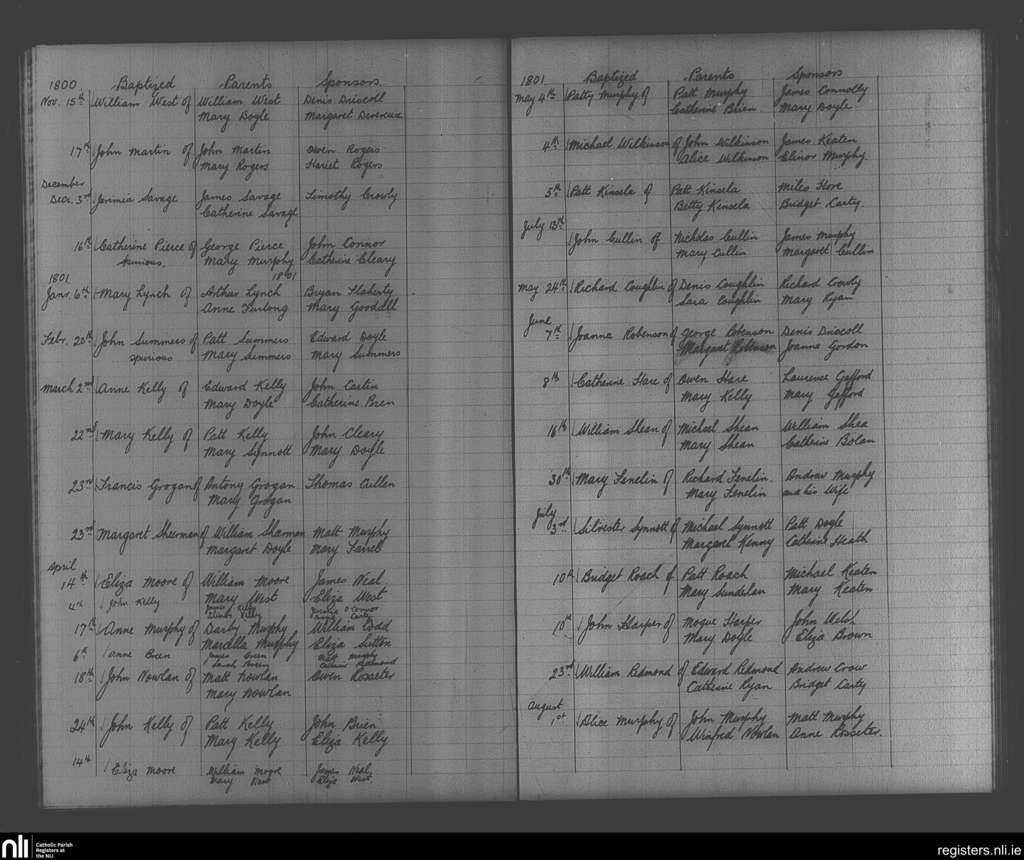 1800. Baptized Parents Sponsors
Nov. 15th William West of William West Denis Driscoll
Mary Doyle Margaret Devereux
17th John Martin of John Martin Owen Rogers
Mary Rogers Hariet Rogers
December
Decr. 3rd Jerimia Savage James Savage Timothy Crowly
Catherine Savage
16th Catherine Pierce of George Pierce John Connor
spurious. Mary Murphy Catherine Cleary
1801 1801
Janr. 6th Mary Lynch of Arthur Lynch Bryan Flaherty
Anne Furlong Mary Goodall
Febr. 20th John Summers of Patt Summers Edward Doyle
spurious Mary Summers Mary Summers
March 2nd Anne Kelly of Edward Kelly John Carten
Mary Doyle Catherine Bren
22nd Mary Kelly of Patt Kelly John Cleary
Mary Synnott Mary Doyle
23rd Francis Grogan of Antony Grogan Thomas Cullen
Mary Grogan
23rd Margaret Sherman of William Sharmon Matt Murphy
Margaret Doyle Mary
April
14th Eliza Moore of William Moore James Neal
Mary West Eliza West
4th John Kelly James Kelly Jerimia O'Connor
Elinor Kelly Carty
17th Anne Murphy of Darby Murphy William Codd
Marcella Murphy Eliza Sutton
6th Anne Breen James Breen Matt Murphy
Sarah Breen Catherine Redmond
18th John Nowlan of Matt Nowlan Owen Rosseter
Mary Nowlan
24th John Kelly of Patt Kelly John Brien
Mary Kelly Eliza Kelly
14th Eliza Moore William Moore James Neal
Mary West Eliza West
1801 Baptized Parents Sponsors
May 4th Patty Murphy of Patt Murphy James Connolly
Catherine Brien Mary Doyle
4th Michael Wilkinson of John Wilkinson James Keaten
Alice Wilkinson Elinor Murphy
5th Patt Kinsela of Patt Kinsela Miles Hore
Betty Kinsela Bridget Carty
July 13th John Cullin of Nicholas Cullin James Murphy
Mary Cullin Margaret Cullin
May 24th Richard Coughlin of Denis Coughlin Richard Crowly
Sara Coughlin Mary Ryan
June
7th Joanna Robenson of George Robenson Denis Driscoll
Margaret Robinson Joanna Gordon
8th Catherine Hare of Owen Hare Laurence Gifford
Mary Kelly Mary Gifford
16th William Shean of Micheal Shean William Shea
Mary Shean Catherine Bolan
30th Mary Fenelin of Richard Fenelin Andrew Murphy
Mary Fenelin and his Wife
July
3rd Silvester Synnott of Michael Synnott Patt Doyle
Margaret Kenny Catherine Heath
10th Bridget Roach of Patt Roach Michael Keaten
Mary Sundelan Mary Keaten
10th John Harper of Mogue Harper John Welsh
Mary Doyle Eliza Brown
23rd William Redmond of Edward Redmond Andrew Crow
Catherine Ryan Bridget Carty
August
1st Alice Murphy of John Murphy Matt Murphy
Winifred Nowlan Anne Rosseter.
nli Catholic Parish
Registers at
the NLI
registers.nli.ie